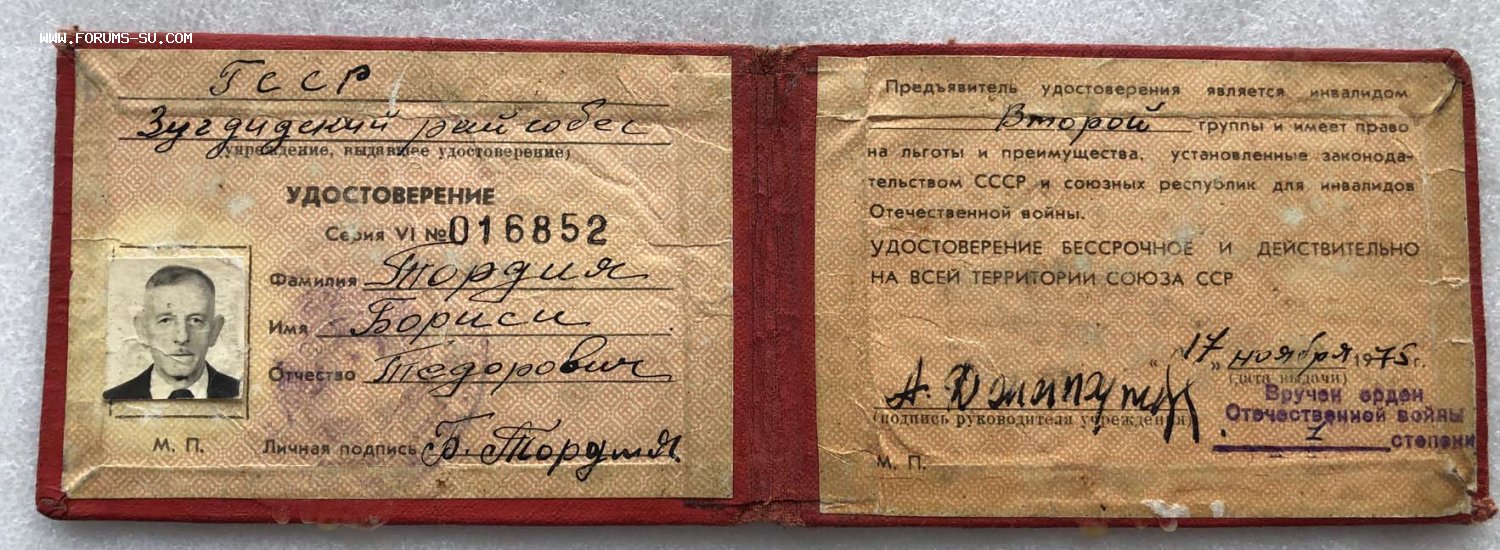 WWW.FORUMS-SU.COM
ГССР
Зугдидский райсобес
(учреждение, выдавшее удостоверение)
УДОСТОВЕРЕНИЕ
Серия VI № 016852
Фамилия Тордия
Имя Бориси
Отчество Тедорович
М. П. Личная подпись Б. Тордия
Предъявитель удостоверения является инвалидом
Второй группы и имеет право
на льготы и преимущества, установленные законода-
тельством СССР и союзных республик для инвалидов
Отечественной войны.
УДОСТОВЕРЕНИЕ БЕССРОЧНОЕ И ДЕЙСТВИТЕЛЬНО
НА ВСЕЙ ТЕРРИТОРИИ СОЮЗА ССР
"17" ноября 1975 г.
(дата выдачи)
А.
(подпись руководителя учреждения)
М. П.
Вручен орден
Отечественной войны
I степени